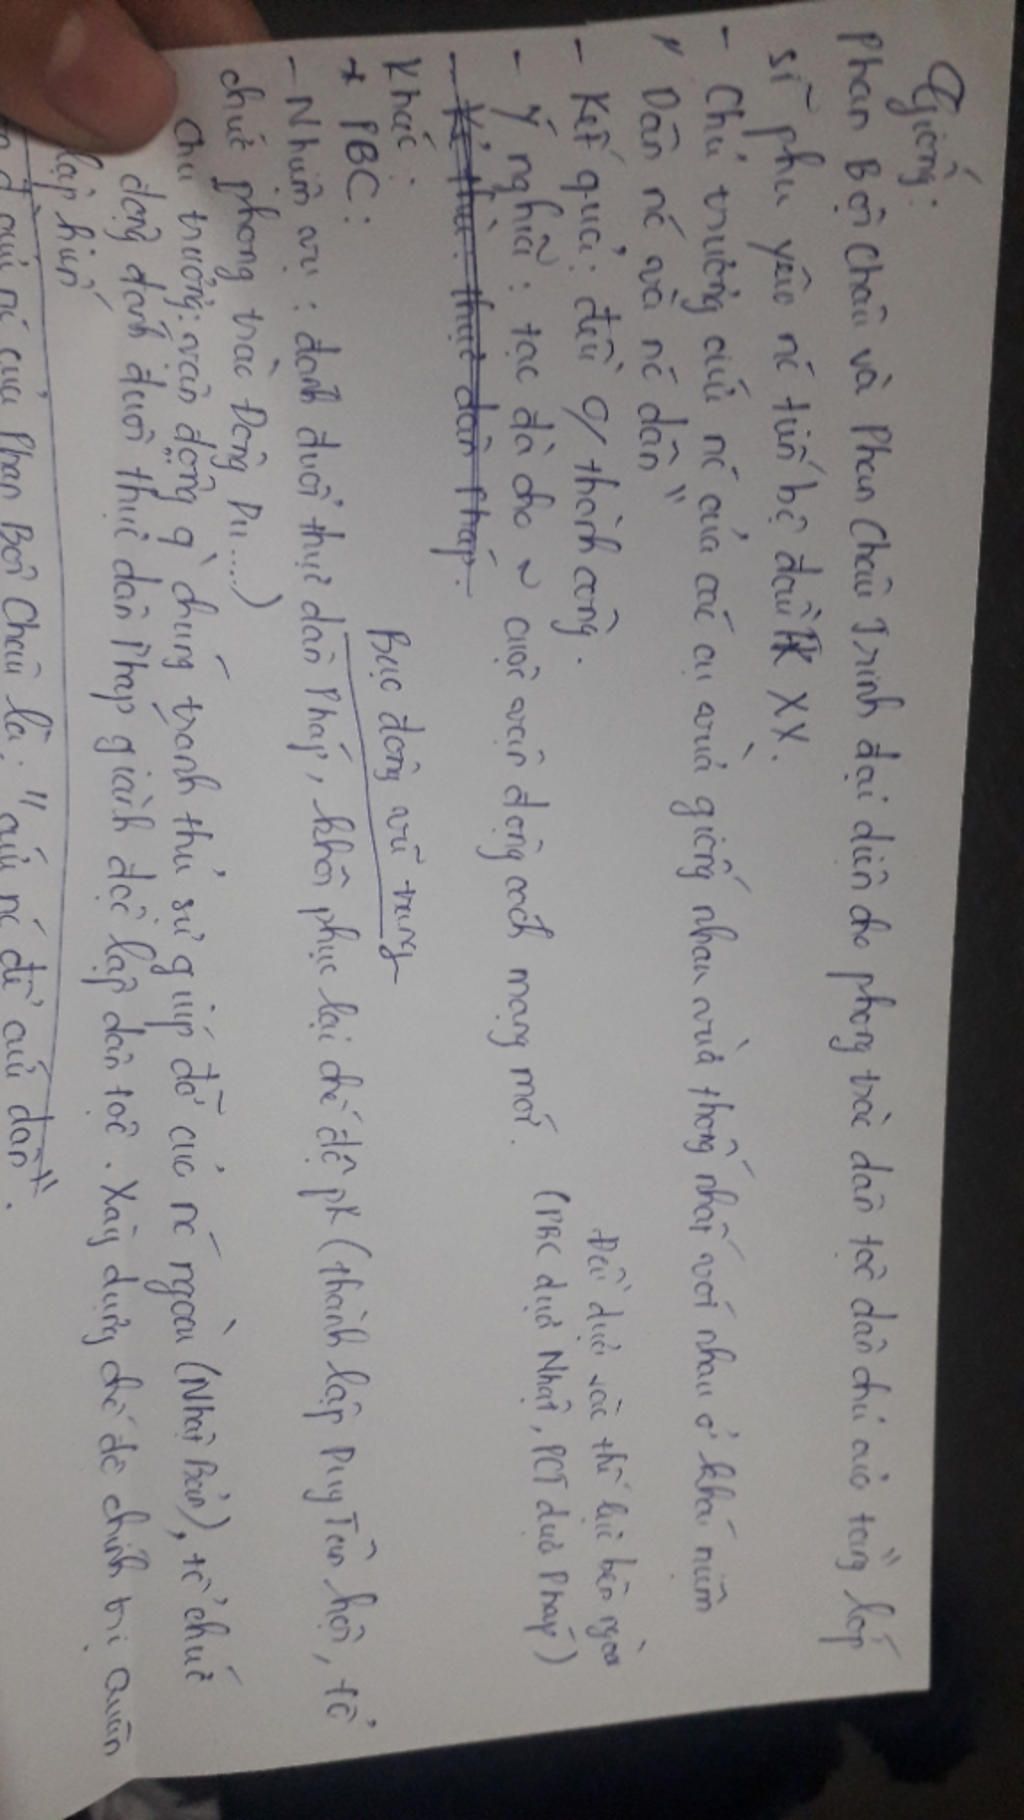 Giống:
Phan Bội Châu và Phan Châu Trinh đại diện cho phong trào dân tộc dân chủ của tầng lớp
sĩ phu yêu nc tiến bộ đầu TK XX.
- Chủ trương cứu nc của các cụ vừa giống nhau vừa thống nhất với nhau ở khái niệm
" Dân nc và nc dân "
- Kết quả: đều 0/ thành công.
Đều dựa vào thế lực bên ngoài
(PBC dựa Nhật, PCT dựa Pháp)
- Ý nghĩa: tạo đà cho ~ cuộc vận động cách mạng mới.
- Kẻ thù: thực dân Pháp.
Khác:
Bạo động vũ trang
* PBC:
- Nhiệm vụ: đánh đuổi thực dân Pháp, khôi phục lại chế độ pk (thành lập Duy Tân hội, tổ
chức phong trào Đông Du....)
Chủ trương: vận động q chúng tranh thủ sự giúp đỡ của nc ngoài (Nhật Bản), tổ chức
động đánh đuổi thực dân Pháp giành độc lập dân tộc. Xây dựng chế độ chính trị quân
lập hiến
cứu nc của Phan Bội Châu là: " cứu nc để cứu dân".